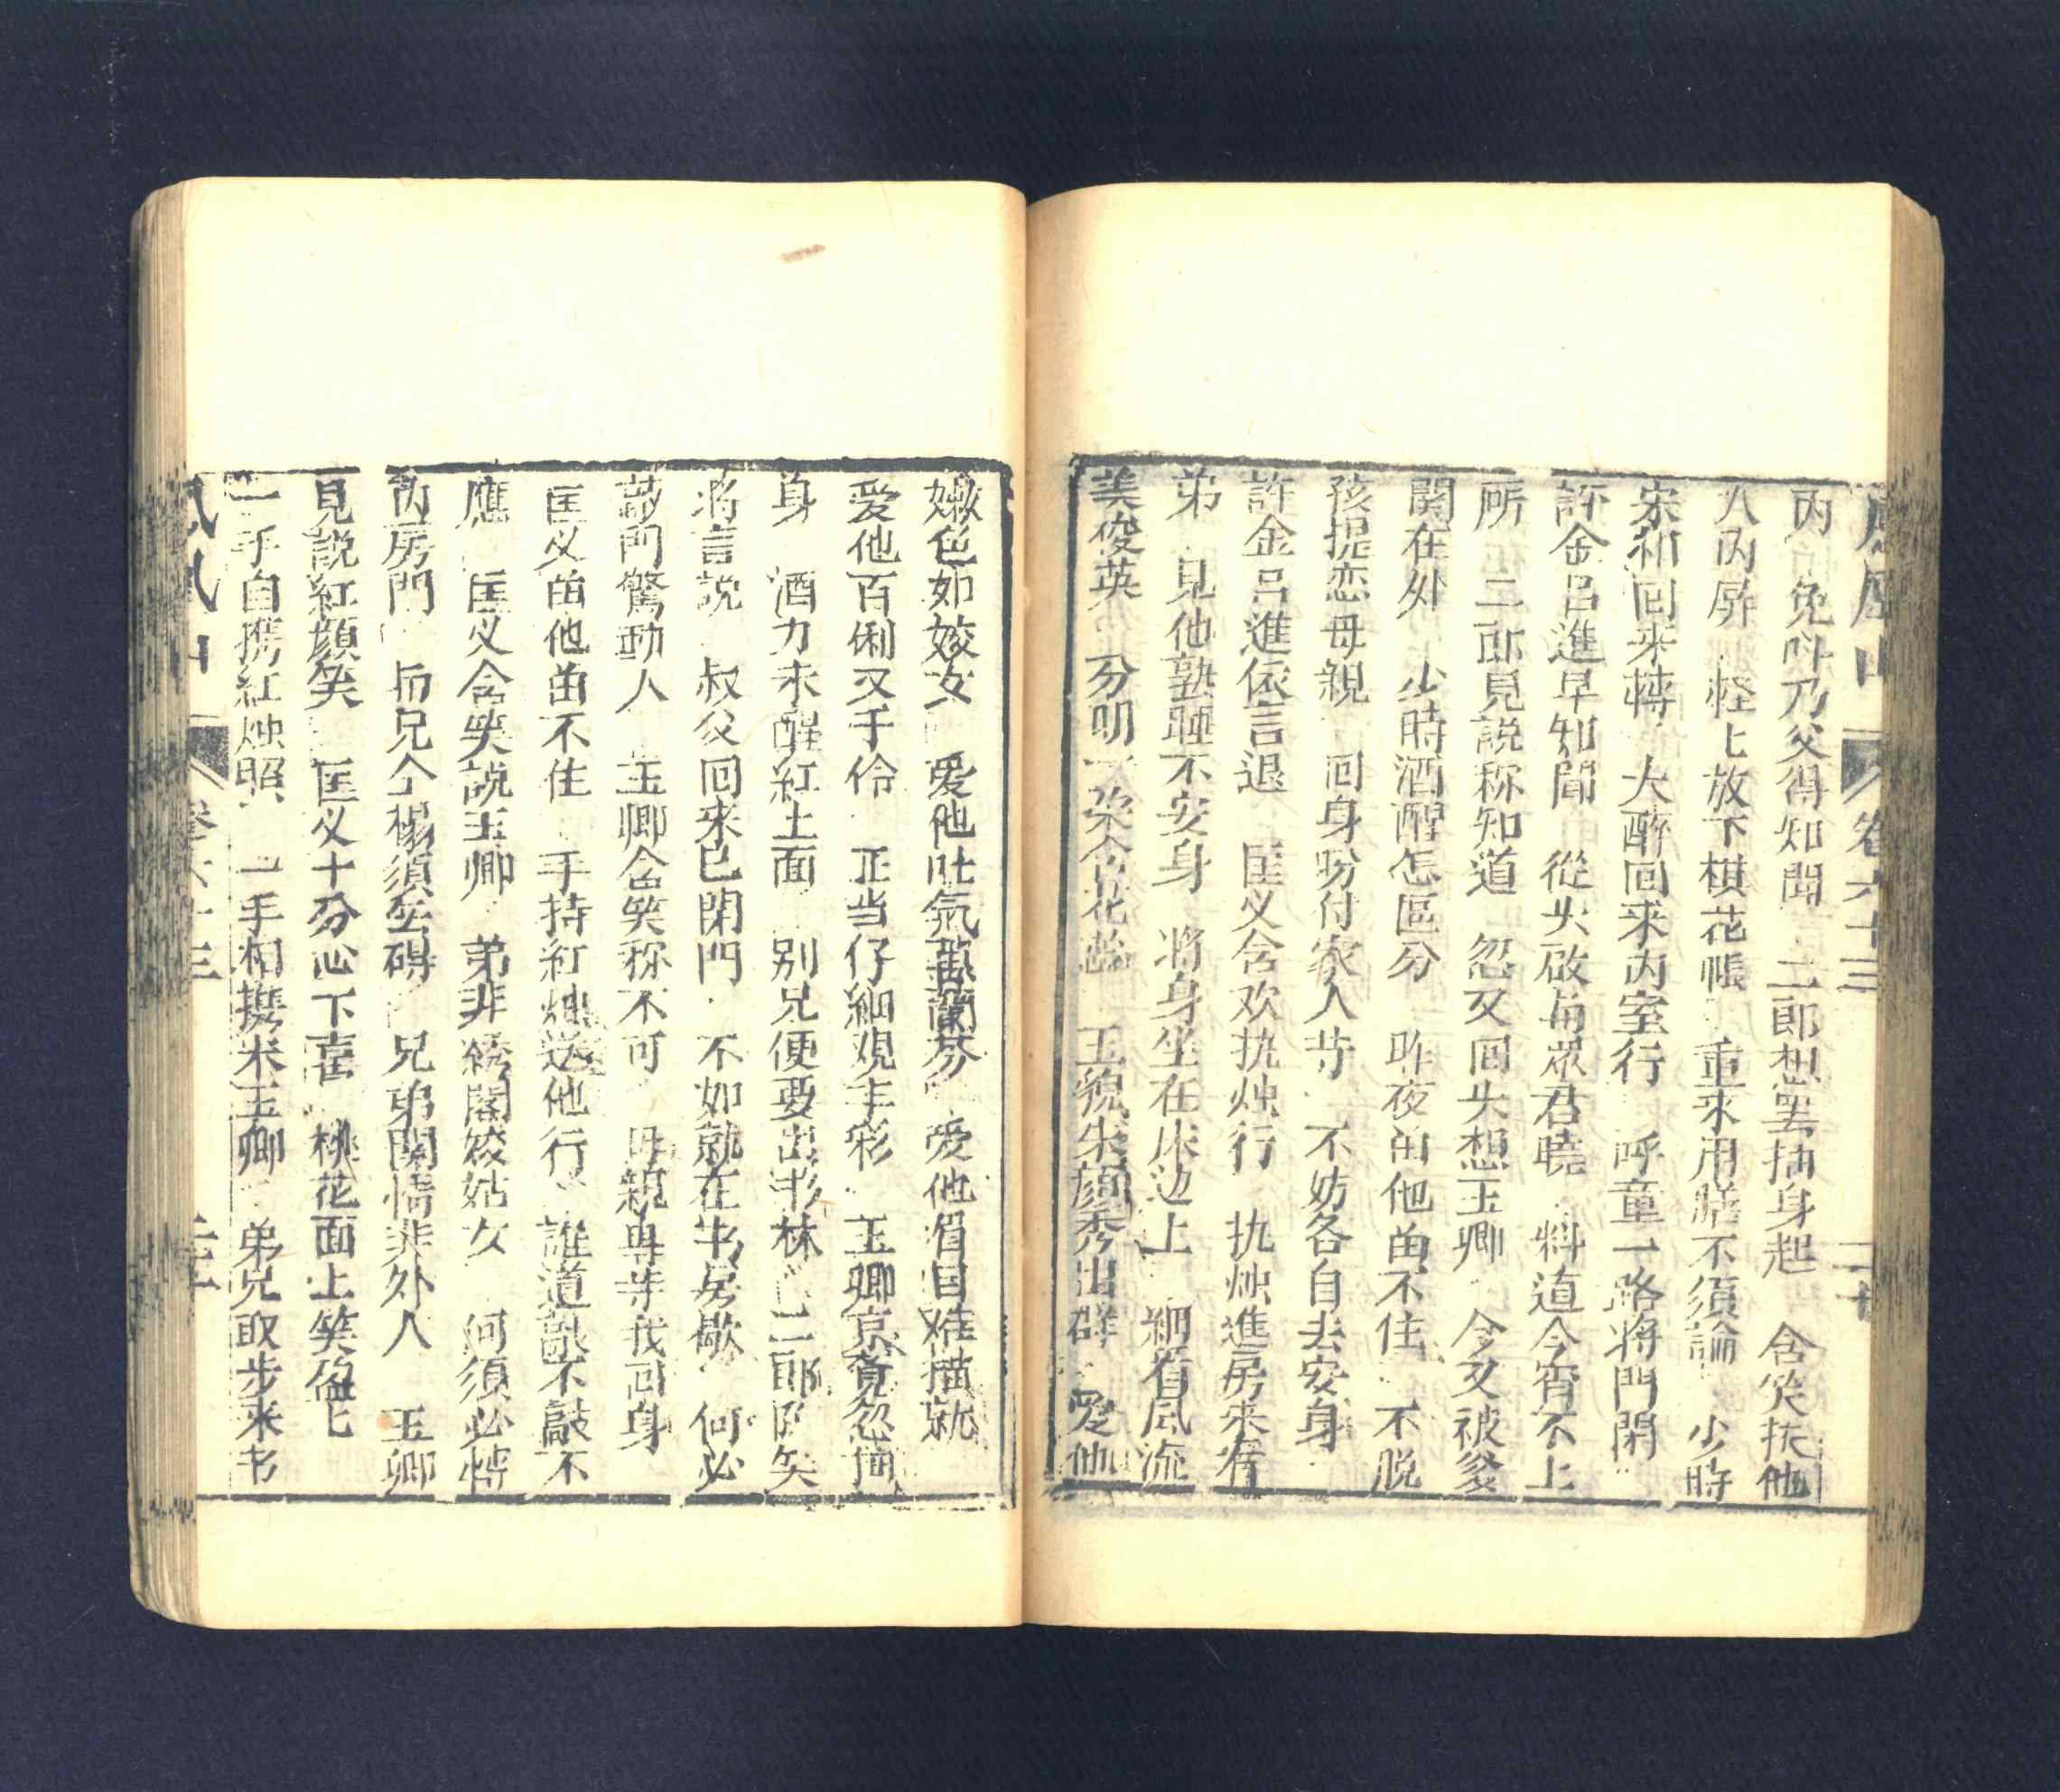 卷六十三
内 免叫乃父得知聞 二郎想罢抽身起 含笑扶他
入内房 輕上放下棋花帳 重来用膳不須論 少時
宋和回来轉 大醉回来内室行 呼童一路将門閉
許金吕進早知聞 從头啟与眾君曉 料道今宵不上
所 二郎見説称知道 忽又回头想玉卿 今又被爹
関在外 少時酒醒怎區分 昨夜留他留不住 不脱
孩提恋母親 回身吩付家人等 不妨各自去安身
許金吕進依言退 匡义含欢执烛行 执烛進房来看
弟 見他熟睡不安身 将身坐在床边上 細看風流
美俊英 分明一朵含花蕊 玉貌朱顔秀出群 爱他
嫩色如姣女 爱他吐氣蕙蘭芬 爱他眉目难描就
爱他百俐又千伶 正当仔細观丰彩 玉卿惊覚忽抽
身 酒力未醒紅上面 别兄便要出书林 二郎陪笑
将言説 叔父回来已閉門 不如就在书房歇 何必
敲門驚動人 玉卿含笑称不可 母親専等我回身
匡义留他留不住 手持紅烛送他行 誰道敲不敲不
應 匡义含笑説玉卿 弟非綉閣姣姑女 何須必轉
内房門 与兄仝榻須无碍 兄弟関情非外人 玉卿
見説紅顔笑 匡义十分心下喜 桃花面上笑盈七
一手自携紅烛照 一手相携米玉卿 弟兄取步来书